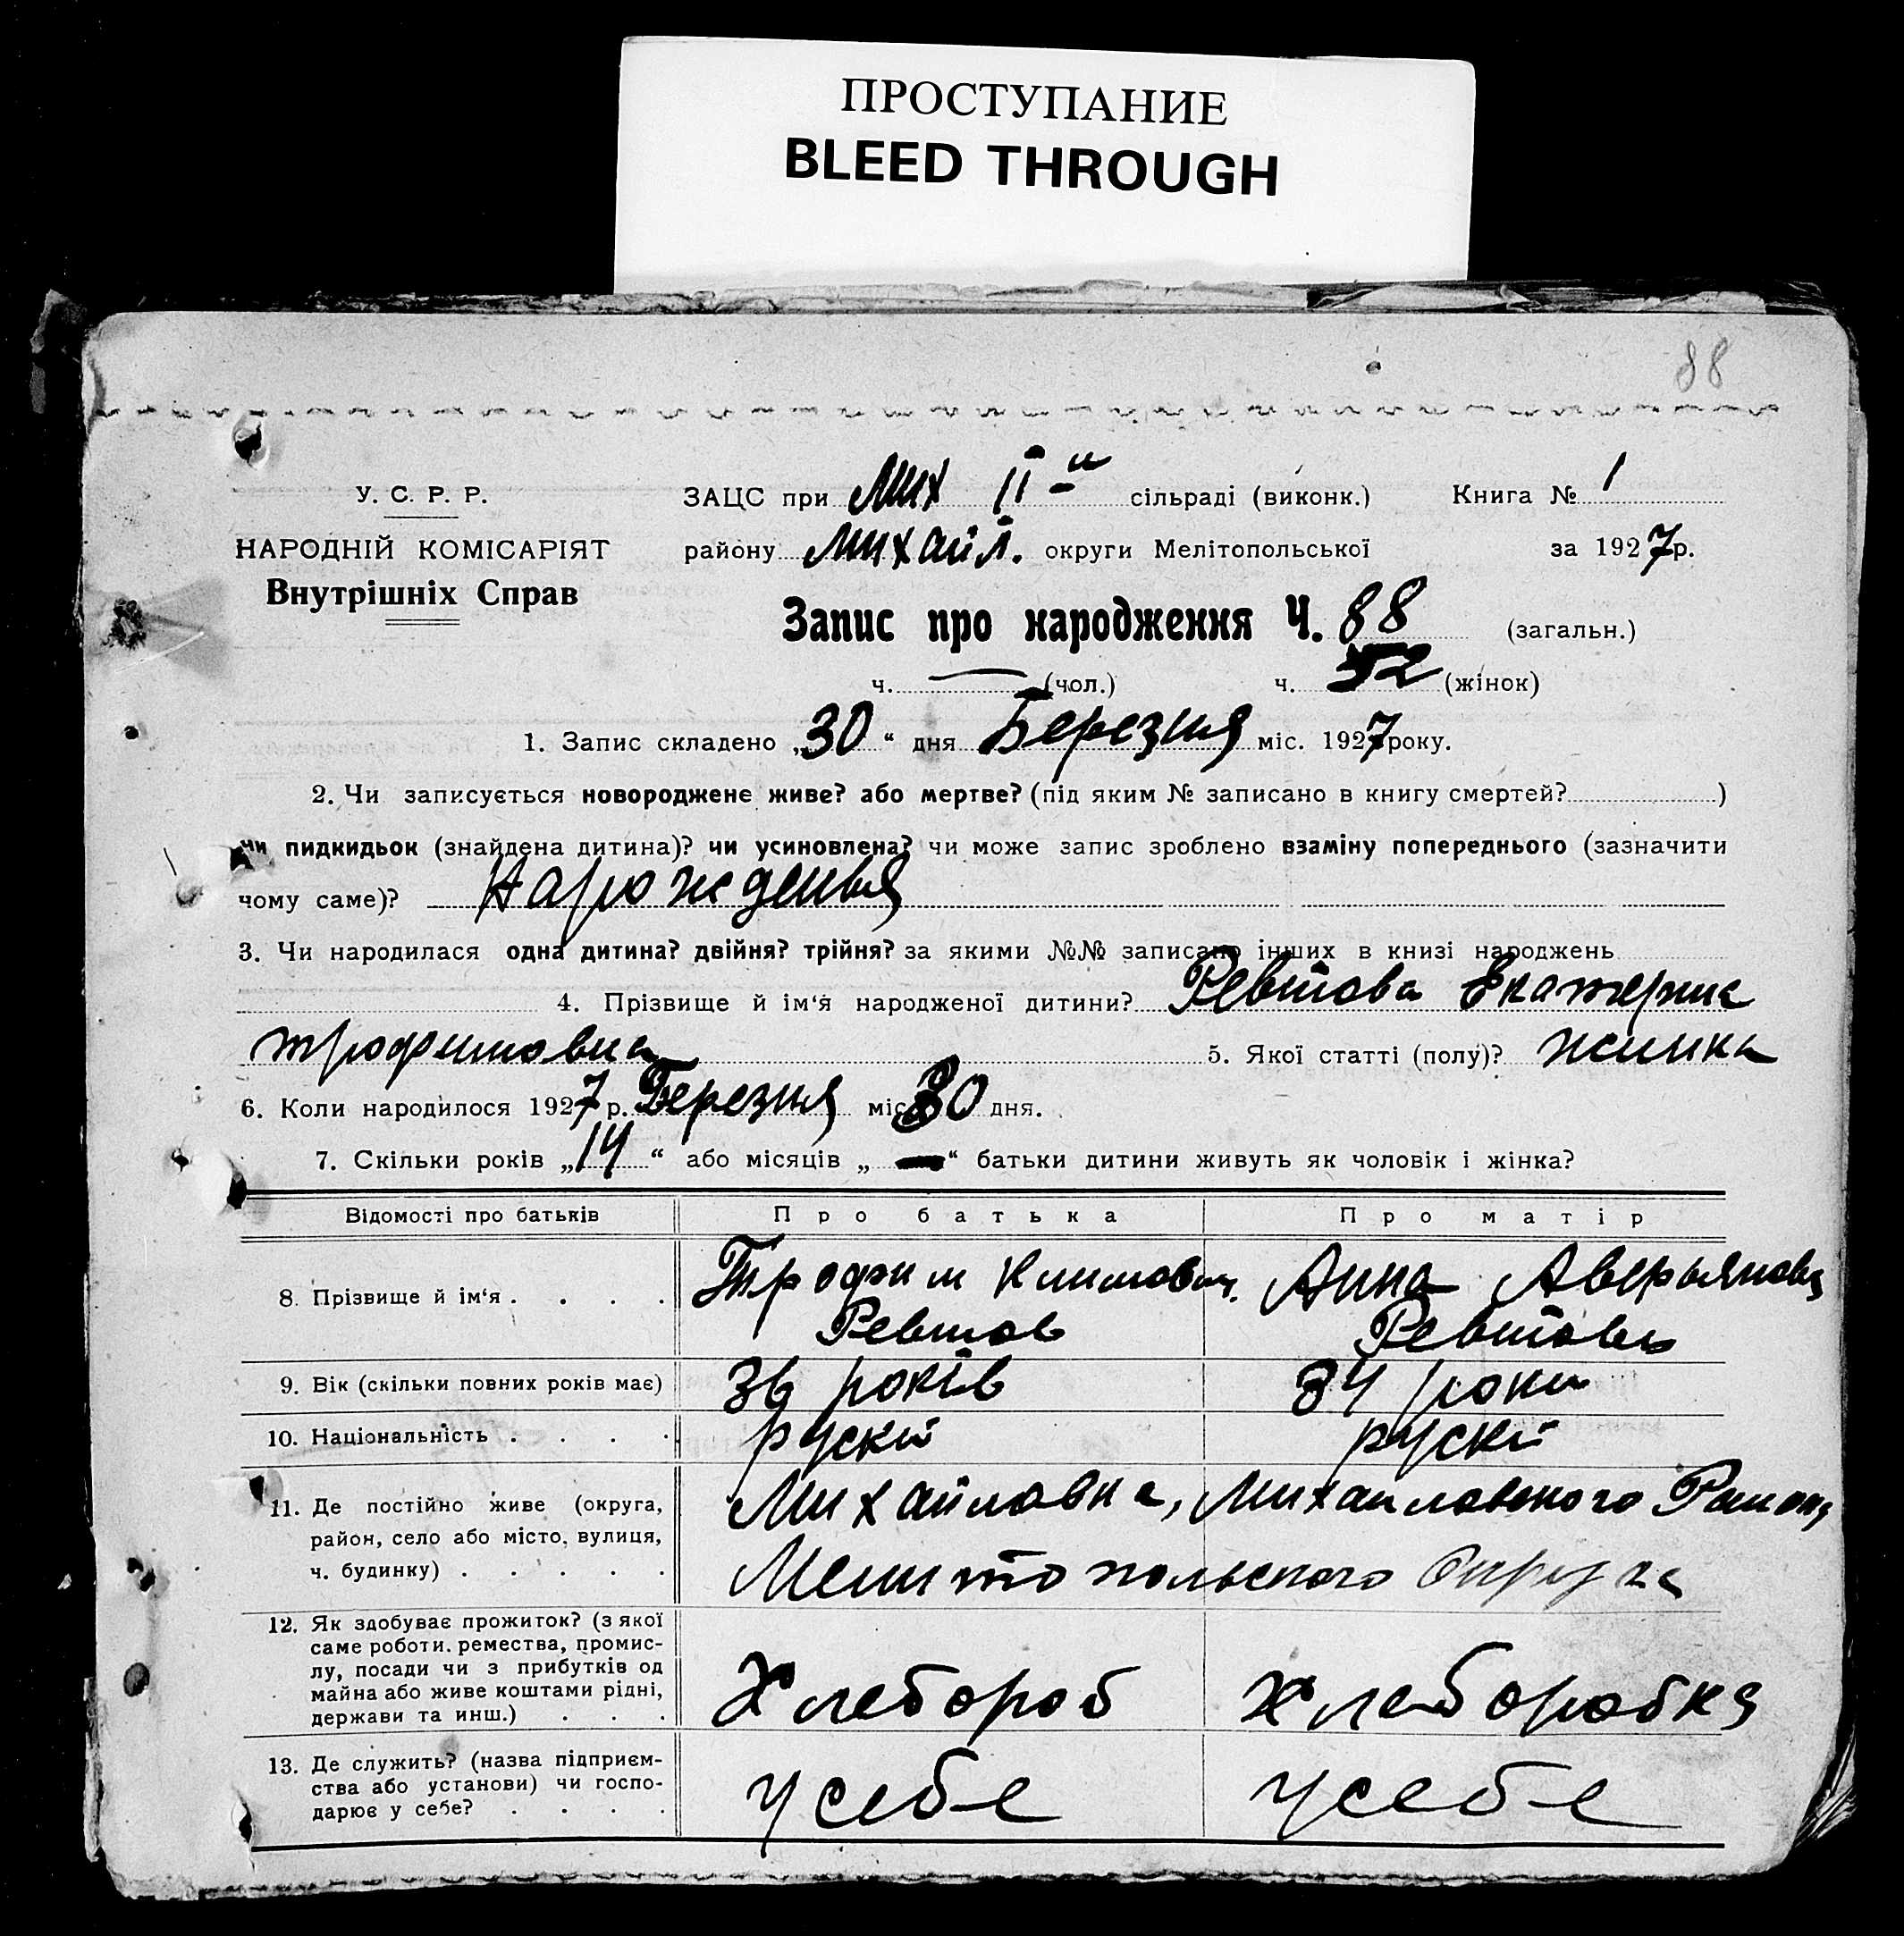 ПРОСТУПАНИЕ
BLEED THROUGH
88
У. С. Р. Р.
НАРОДНІЙ КОМІСАРІЯТ
Внутрішніх Справ
ЗАЦС при Мих ІІ й сільраді (виконк.) Книга № 1
району Михайл. округи Мелітопольської за 1927 р.
Запис про народження Ч. 88 (загальн.)
ч. — (чол.) ч. 52 (жінок)
1. Запис складено „30“ дня Березня міс. 1927 року.
2. Чи записується новороджене живе? або мертве? (під яким № записано в книгу смертей? )
чи пидкидьок (знайдена дитина)? чи усиновлена? чи може запис зроблено взаміну попереднього (зазначити
чому саме)? Нарожденья
3. Чи народилася одна дитина? двійня? трійня? за якими №№ записано інших в книзі народжень
4. Прізвище й ім‘я народженої дитини? Екатерина
Трофимовна 5. Якої статті (полу)? жинка
6. Коли народилося 1927 р. Березня міс. 30 дня.
7. Скільки років „14“ або місяців „—“ батьки дитини живуть як чоловік і жінка?
Відомості про батьків Про батька Про матір
8. Прізвище й ім‘я . . . . Трофим Климович. Анна Аверьянова
9. Вік (скільки повних років має) 36 років 34 роки
10. Національність . . . . рускій рускій
11. Де постійно живе (округа, район, село або місто, вулиця, ч. будинку) . . . . .
Михайловка, Михайловского Района
Мелитопольского Округа
12. Як здобуває прожиток? (з якої саме роботи, ремества, промислу, посади чи з прибутків од майна або живе коштами рідні, держави та инш.) . . .
Хлебороб Хлеборобка
13. Де служить? (назва підприємства або установи) чи господарює у себе? . . . .
у себе у себе